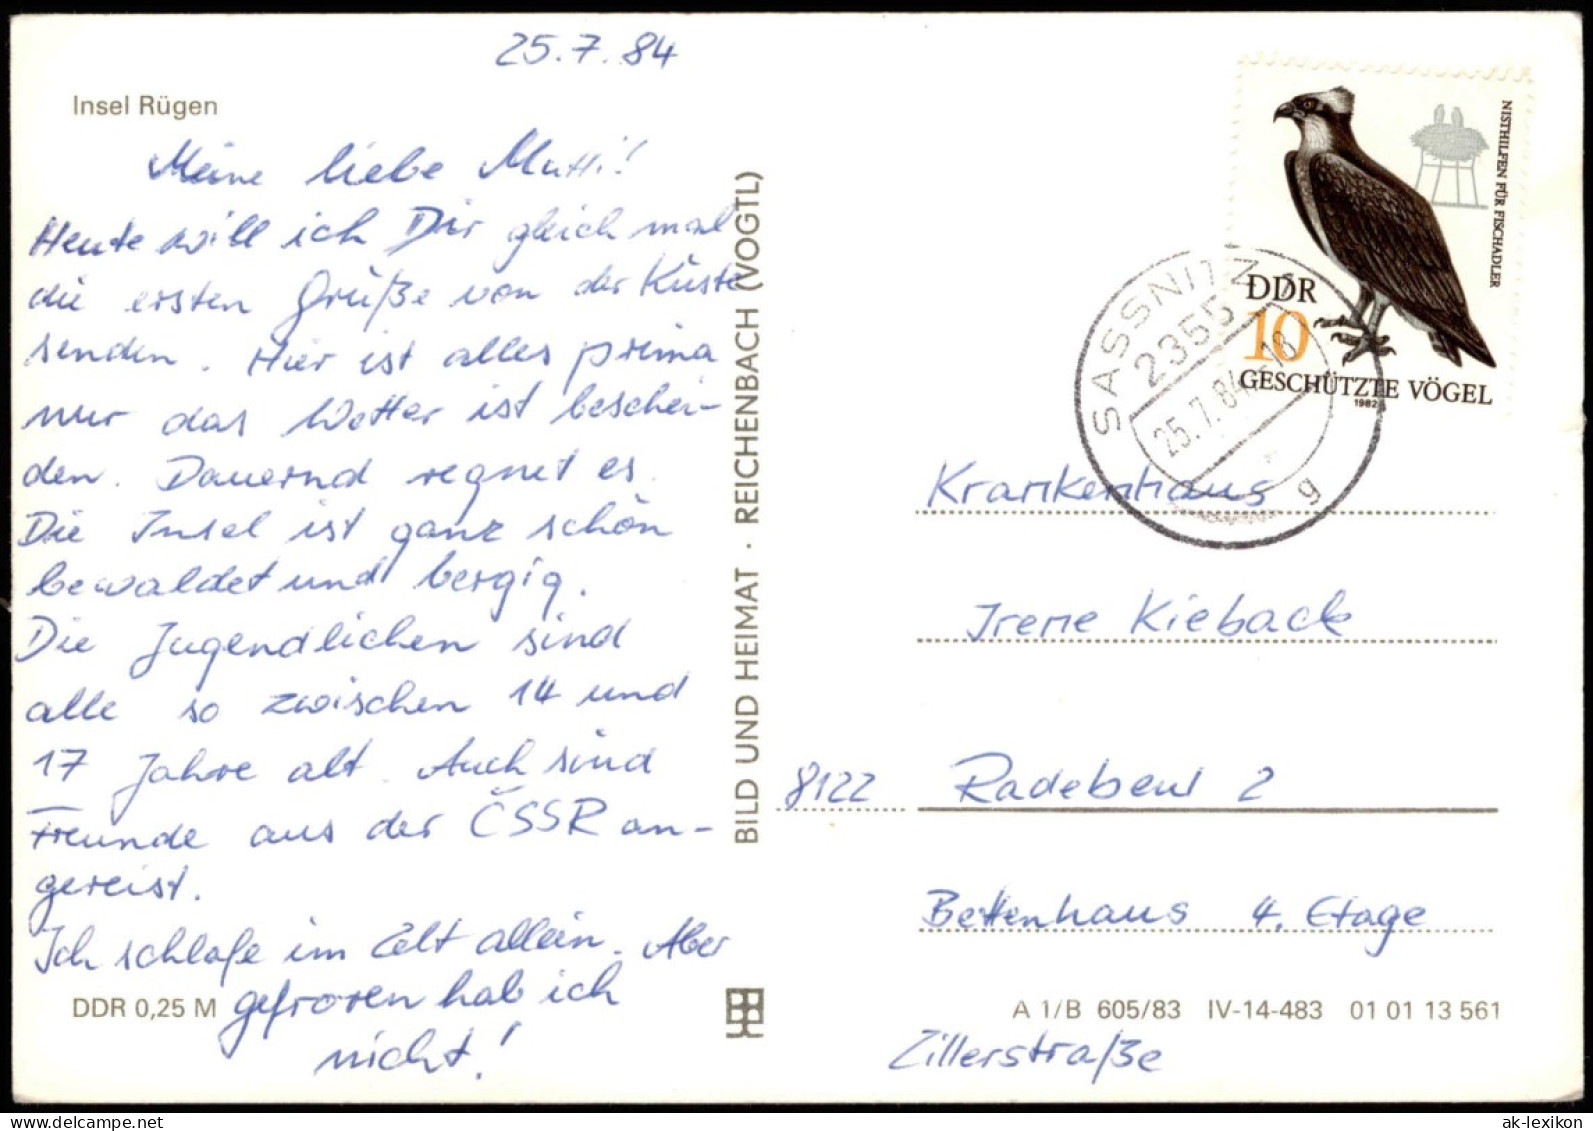 25.7.84
Insel Rügen
Meine liebe Mutti!
Heute will ich Dir gleich mal
die ersten Grüße von der Küste
senden. Hier ist alles prima
nur das Wetter ist beschei-
den. Dauernd regnet es.
Die Insel ist ganz schön
bewaldet und bergig.
Die Jugendlichen sind
alle so zwischen 14 und
17 Jahre alt. Auch sind
Freunde aus der ČSSR an-
gereist.
Ich schlafe im Zelt allein. Aber
gefroren hab ich
nicht!
DDR 0,25 M
BILD UND HEIMAT · REICHENBACH (VOGTL)
NISTHILFEN FÜR FISCHADLER
DDR
10
GESCHÜTZTE VÖGEL
1982
SASSNITZ
2355
25.7.84-18
g
Krankenhaus
Irene Kieback
8122 Radebeul 2
Bettenhaus 4. Etage
A 1/B 605/83 IV-14-483 01 01 13 561
Zillerstraße
ak-lexikon